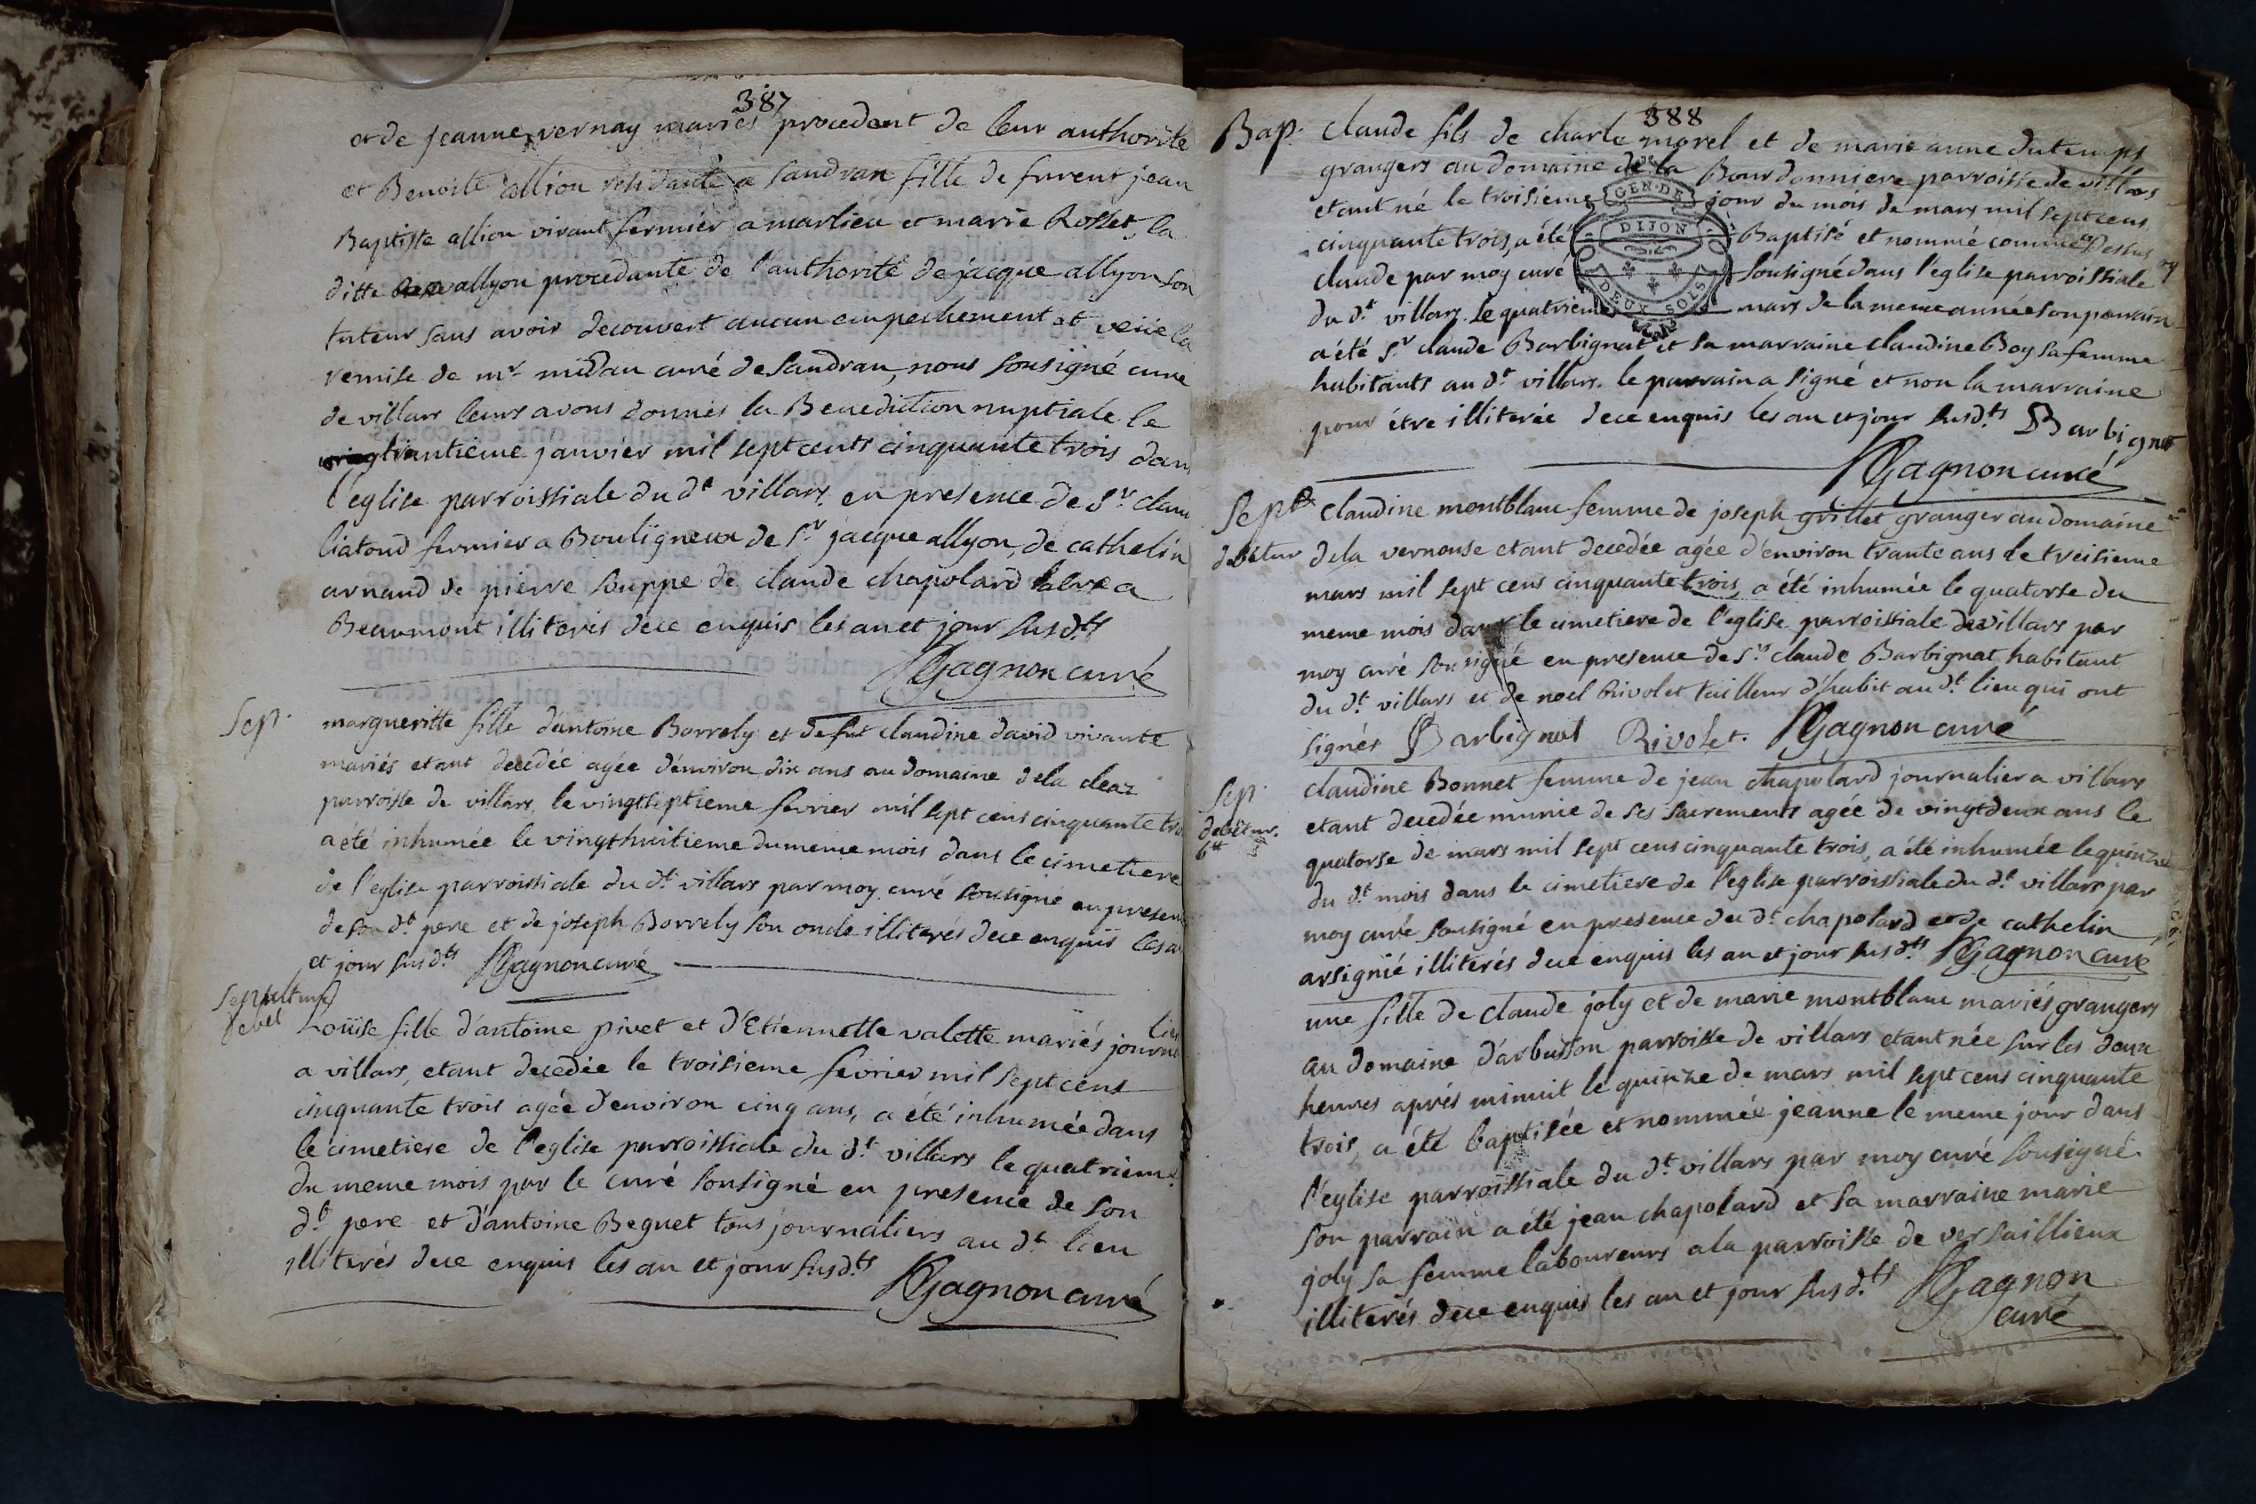 387
et de jeanne vernay mariés procedent de leur authorité
et Benoite allion residante a sandran fille de furent jean
Baptiste allion vivant fermier a marlieu et marie Rosset, la
ditte allyon procedante de l'authorité de jacque allyon son
tuteur sans avoir decouvert aucun empechement et veüe la
remise de mr midan curé de sandran, nous sousigné curé
de villars leurs avons donnés la Benediction nuptiale le
trantieme janvier mil sept cents cinquante trois dans
l'eglise parroissiale du dt villars en presence de Sr
liatoud fermier a Bouligneux de Sr jacque allyon, de cathelin
arnaud de pierre souppe de claude chapolard a
Beaumont illiterés de ce enquis les an et jour susdts
Gagnon curé
Sep.
margueritte fille d'antoine Borrely et de fut claudine david vivante
mariés etant decedée agée d'environ dix ans au domaine dela cleaz
parroisse de villars, le vingtseptieme fevrier mil sept cens cinquante
a été inhumée le vingthuitieme du meme mois dans le cimetiere
de l'eglise parroissiale du dt villars par moy curé sousigné en
de son dt pere et de joseph Borrely son oncle illiterés de ce enquis les
et jour susdts Gagnon curé
Sepulture
Louïse fille d'antoine pivet et d'Etiennette valette mariés
a villars, etant decedée le troisieme fevrier mil sept cens
cinquante trois agée d'environ cinq ans, a été inhumée dans
le cimetiere de l'eglise parroissiale du dt villars le quatrieme
du meme mois par le curé sousigné en presence de son
dt pere et d'antoine Beguet tous journaliers au dt lieu
illiterés de ce enquis les an et jour susdts
Gagnon curé
388
Bap. Claude fils de charle morel et de marie anne dutemps
grangers au domaine de la Bourdonniere parroisse de villars
etant né le troisieme jour du mois de mars mil sept cens
cinquante trois, a été Baptisé et nommé comme Dessus
claude par moy curé sousigné dans l'eglise parroissiale
du dt villars le quatrieme mars de la meme année son parrain
a été Sr claude Barbignat et sa marraine claudine Boy sa femme
habitants au dt villars. le parrain a signé et non la marraine
pour étre illiterée de ce enquis les an et jour susdts Barbignat
GEN. DE
DIJON
DEUX SOLS
Gagnon curé
Sept. claudine montblanc femme de joseph grillet granger au domaine
debetur dela vernouse etant decedée agée d'environ trante ans le treisieme
mars mil sept cens cinquante trois, a été inhumée le quatorse du
meme mois dans le cimetiere de l'eglise parroissiale de villars par
moy curé sousigné en presence de Sr claude Barbignat habitant
du dt villars et de noel Rivolet tailleur d'habit au dt lieu qui ont
signés Barbignat Rivolet. Gagnon curé
Sep.
debetur.
6tt
claudine Bonnet femme de jean chapolard journalier a villars
etant decedée munie de ses sacrements agée de vingtdeux ans le
quatorse de mars mil sept cens cinquante trois, a été inhumée le quinze
du dt mois dans le cimetiere de l'eglise parroissiale du dt villars par
moy curé sousigné en presence du dt chapolard et de cathelin
arsignié illiterés de ce enquis les an et jour susdts Gagnon curé
une fille de claude joly et de marie montblanc mariés, grangers
au domaine d'arbusson parroisse de villars etant née sur les deux
heures aprés minuit le quinze de mars mil sept cens cinquante
trois, a été baptisée et nommée jeanne le meme jour dans
l'eglise parroissiale du dt villars par moy curé sousigné
son parrain a été jean chapolard et sa marraine marie
joly sa femme laboureurs a la parroisse de versaillieux
illiterés de ce enquis les an et jour susdts Gagnon
curé